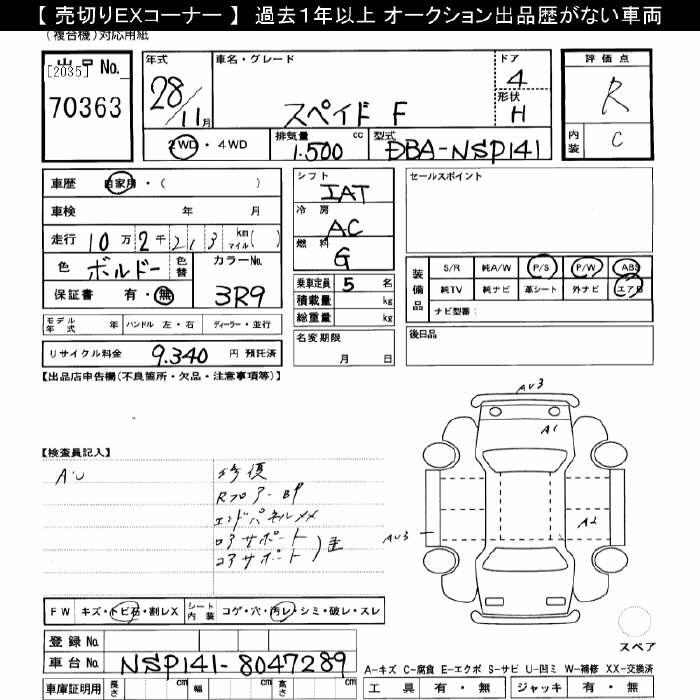 【 売切りEXコーナー 】 過去１年以上 オークション出品歴がない車両
(複合機)対応用紙
出品 No.
[2035]
70363
年式
28/11月
車名・グレード
スペイド F
ドア
4
形状
H
評価点
R
内装
C
2WD・4WD
排気量 cc
1.500
型式
DBA-NSP141
車歴 自家用・( )
車検 年 月
走行 10万2千213 km マイル( )
色 ボルドー 色替
カラーNo.
3R9
保証書 有・無
シフト
IAT
冷房
AC
燃料
G
乗車定員 5 名
積載量 kg
総重量 kg
セールスポイント
装備品
S/R 純A/W P/S P/W ABS
純TV 純ナビ 革シート 外ナビ エアB
ナビ型番：
モデル年式 年 ハンドル 左・右 ディーラー・並行
名変期限
月 日
後日品
リサイクル料金 9.340 円 預託済
【出品店申告欄(不良箇所・欠品・注意事項等)】
【検査員記入】
AU
修復
Rフロアー BP
エンドパネルXX
ロアサポート
コアサポート
AU3
A1
A2
AU3
FW キズ・トビ石・割レX
シート内装 コゲ・穴・汚レ・シミ・破レ・スレ
登録 No.
車台 No. NSP141-8047289
車庫証明用 長さ cm 幅 cm 高さ cm
スペア
A-キズ C-腐食 E-エクボ S-サビ U-凹ミ W-補修 XX-交換済
工具 有・無 ジャッキ 有・無